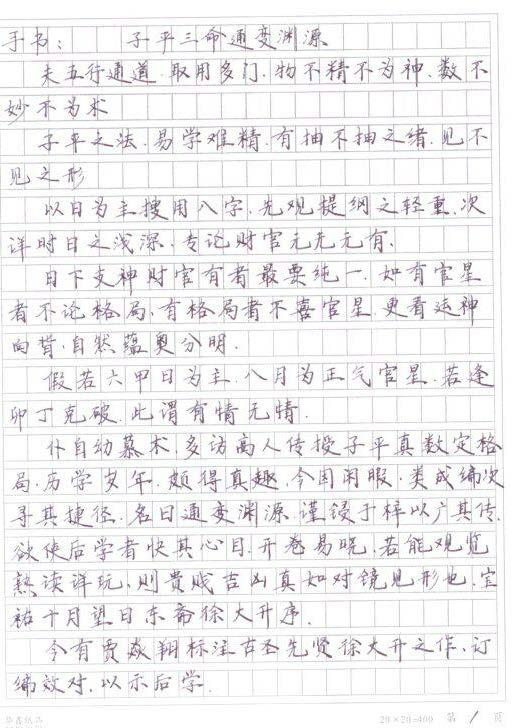 手书: 子平三命通变渊源
夫五行通道.取用多门.物不精不为神.数不
妙不为术
子平之法.易学难精.有抽不抽之绪.见不
见之形
以日为主搜用八字.先观提纲之轻重.次
详时日之浅深.专论财官元先元有.
日下支神财官有者最要纯一.如有官星
者不论格局.有格局者不喜官星.更看运神
向背.自然蕴奥分明.
假若六甲日为主.八月为正气官星.若逢
卯丁克破.此谓有情无情.
仆自幼慕术.多访高人传授子平真数定格
局.历学岁年.颇得真趣.今因闲暇.类成编次
寻其捷径.名曰通变渊源.谨锓于梓以广其传.
欲使后学者快其心目.开卷易晓.若能观览
熟读详玩.则贵贱吉凶真如对镜见形也.宝
祐十月望日东斋徐大升序.
今有贾焱翔标注古圣先贤徐大升之作.订
编效对.以示后学.
20×20=400 第 1 页